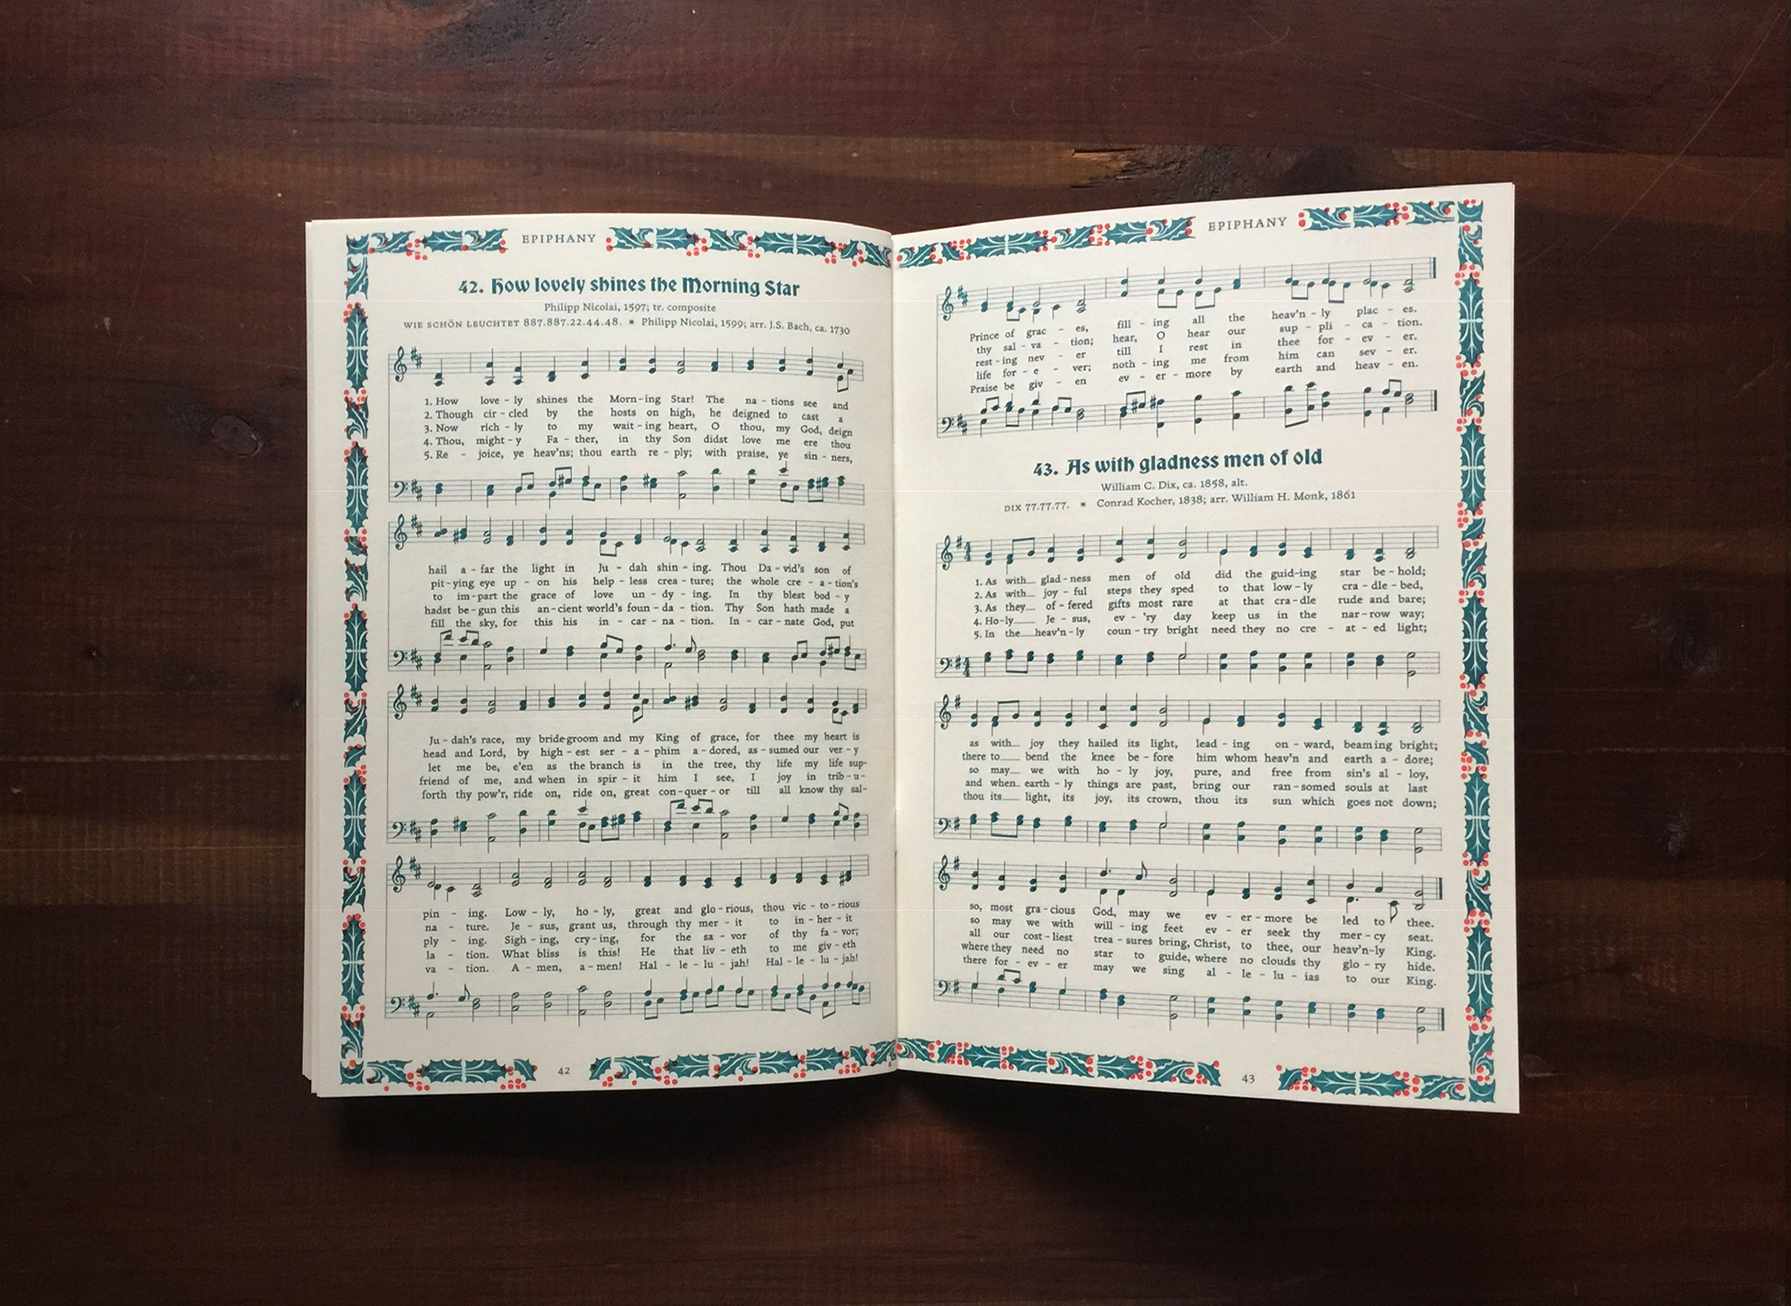 EPIPHANY
42. How lovely shines the Morning Star
Philipp Nicolai, 1597; tr. composite
WIE SCHÖN LEUCHTET 887.887.22.44.48. ✶ Philipp Nicolai, 1599; arr. J.S. Bach, ca. 1730
1. How love - ly shines the Morn - ing Star! The na - tions see and
2. Though cir - cled by the hosts on high, he deigned to cast a
3. Now rich - ly to my wait - ing heart, O thou, my God, deign
4. Thou, might - y Fa - ther, in thy Son didst love me ere thou
5. Re - joice, ye heav'ns; thou earth re - ply; with praise, ye sin - ners,
hail a - far the light in Ju - dah shin - ing. Thou Da - vid's son of
pit - ying eye up - on his help - less crea - ture; the whole cre - a - tion's
to im - part the grace of love un - dy - ing. In thy blest bod - y
hadst be - gun this an - cient world's foun - da - tion. Thy Son hath made a
fill the sky, for this his in - car - na - tion. In - car - nate God, put
Ju - dah's race, my bridegroom and my King of grace, for thee my heart is
head and Lord, by high - est ser - a - phim a - dored, as - sumed our ver - y
let me be, e'en as the branch is in the tree, thy life my life sup-
friend of me, and when in spir - it him I see, I joy in trib - u-
forth thy pow'r, ride on, ride on, great con - quer - or till all know thy sal-
pin - ing. Low - ly, ho - ly, great and glo - rious, thou vic - to - rious
na - ture. Je - sus, grant us, through thy mer - it to in - her - it
ply - ing. Sigh - ing, cry - ing, for the sa - vor of thy fa - vor;
la - tion. What bliss is this! He that liv - eth to me giv - eth
va - tion. A - men, a - men! Hal - le - lu - jah! Hal - le - lu - jah!
42
EPIPHANY
Prince of grac - es, fill - ing all the heav'n - ly plac - es.
thy sal - va - tion; hear, O hear our sup - pli - ca - tion.
rest - ing nev - er till I rest in thee for - ev - er.
life for - e - ver; noth - ing me from him can sev - er.
Praise be giv - en ev - er - more by earth and heav - en.
43. As with gladness men of old
William C. Dix, ca. 1858, alt.
DIX 77.77.77. ✶ Conrad Kocher, 1838; arr. William H. Monk, 1861
1. As with glad - ness men of old did the guid - ing star be - hold;
2. As with joy - ful steps they sped to that low - ly cra - dle - bed,
3. As they of - fered gifts most rare at that cra - dle rude and bare;
4. Ho - ly Je - sus, ev - 'ry day keep us in the nar - row way;
5. In the heav'n - ly coun - try bright need they no cre - at - ed light;
as with joy they hailed its light, lead - ing on - ward, beaming bright;
there to bend the knee be - fore him whom heav'n and earth a - dore;
so may we with ho - ly joy, pure, and free from sin's al - loy,
and when earth - ly things are past, bring our ran - somed souls at last
thou its light, its joy, its crown, thou its sun which goes not down;
so, most gra - cious God, may we ev - er - more be led to thee.
so may we with will - ing feet ev - er seek thy mer - cy seat.
all our cost - liest trea - sures bring, Christ, to thee, our heav'n - ly King.
where they need no star to guide, where no clouds thy glo - ry hide.
there for - ev - er may we sing al - le - lu - ias to our King.
43